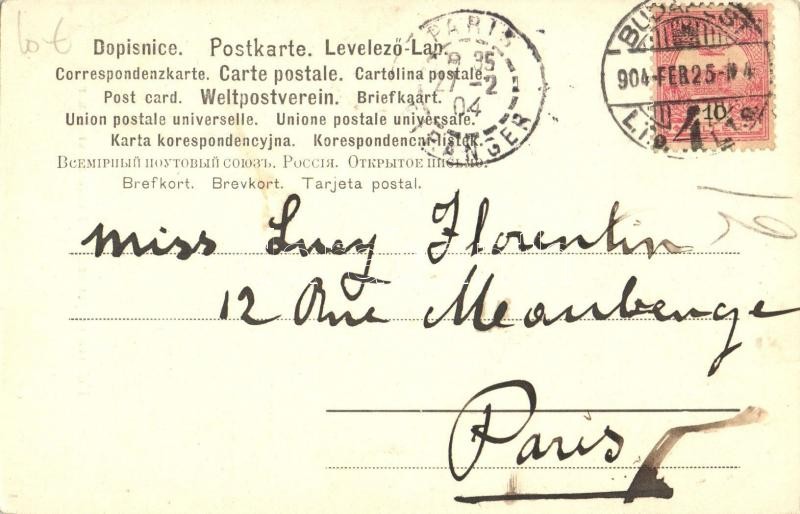 lot
Dopisnice. Postkarte. Levelező-Lap.
Correspondenzkarte. Carte postale. Cartolina postale.
Post card. Weltpostverein. Briefkaart.
Union postale universelle. Unione postale universale.
Karta korespondencyjna. Korespondenčni listek.
Всемірный почтовый союзъ. Россія. Открытое письмо.
Brefkort. Brevkort. Tarjeta postal.
PARIS
27 -2
04
ETRANGER
BUDAPEST
904-FEB25-N4
10
Miss Lucy Florentin
12 Rue Meaubenge
Paris